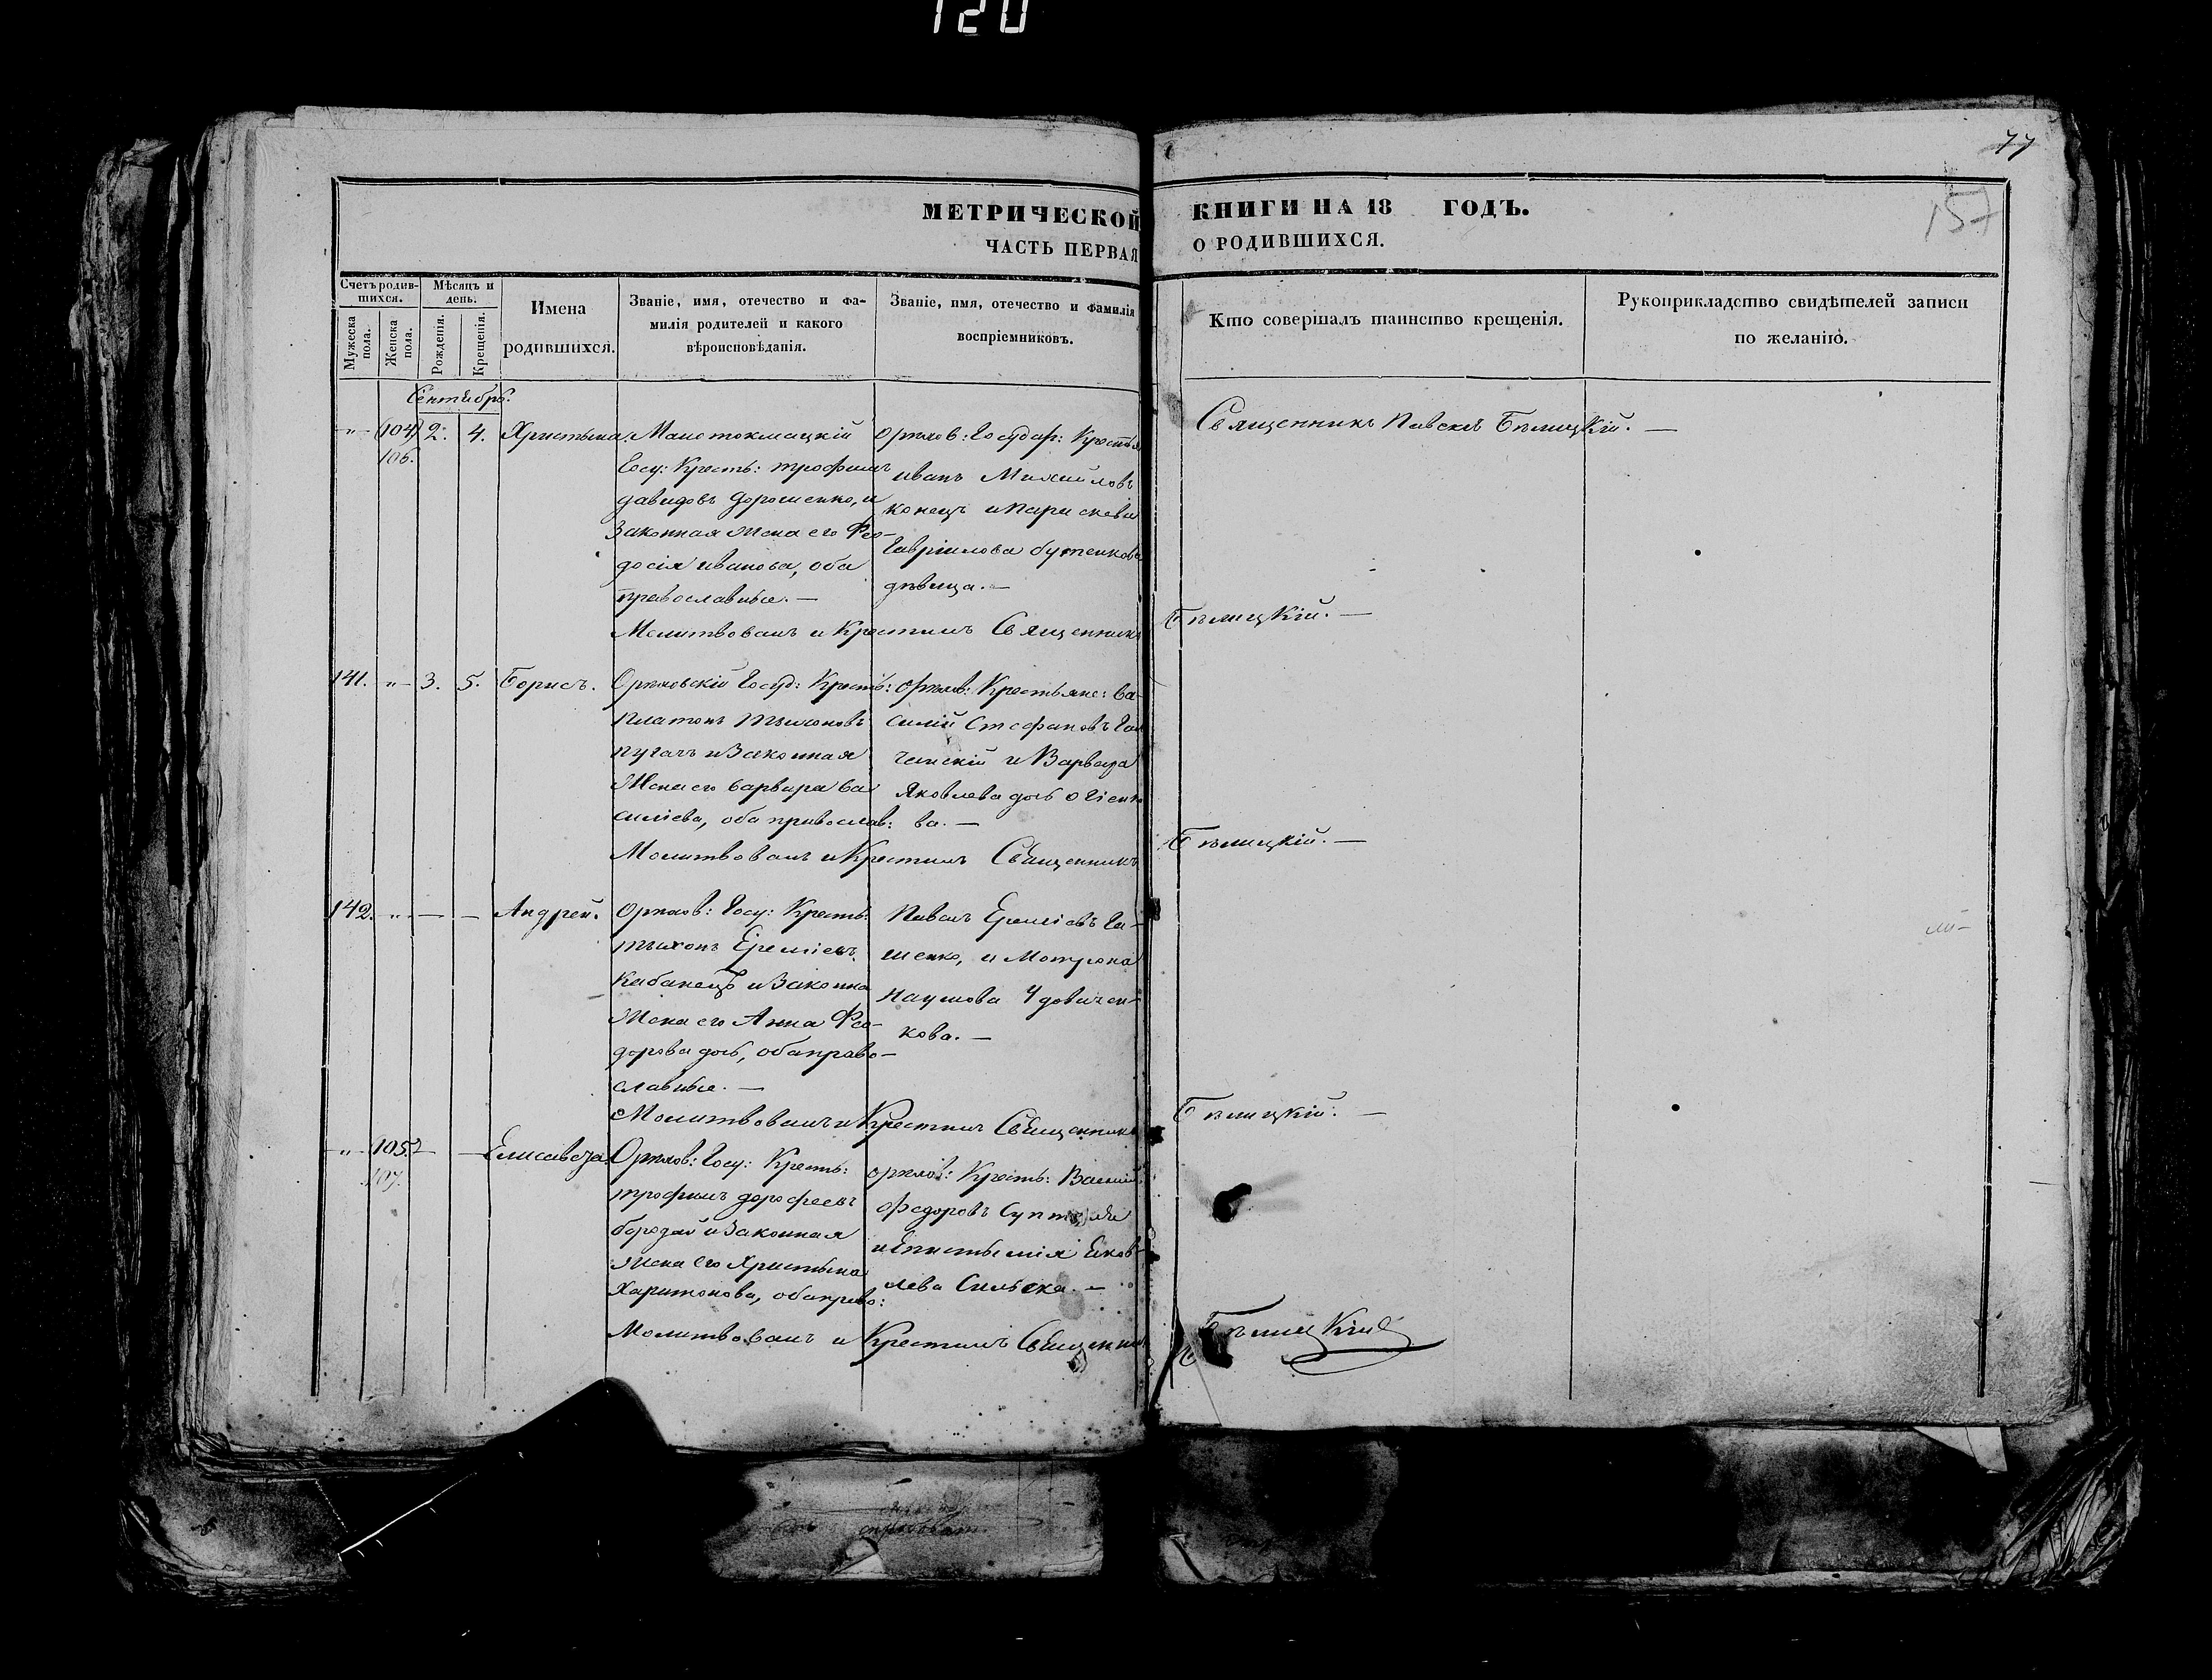 120
77
157
МЕТРИЧЕСКОЙ КНИГИ НА 18 ГОДЪ.
ЧАСТЬ ПЕРВАЯ О РОДИВШИХСЯ.
Счетъ родив-
шихся.
Мужеска пола.
Женска пола.
Мѣсяцъ и день.
Рожденія.
Крещенія.
Имена
родившихся.
Званіе, имя, отечество и фа-
милія родителей и какого
вѣроисповѣданія.
Званіе, имя, отечество и фамилія
воспріемниковъ.
Кто совершалъ таинство крещенія.
Рукоприкладство свидѣтелей записи
по желанію.
Сентябрь.
"
104
106.
2.
4.
Христина
Малотокмацкій
Госу: Кресть: трофимъ
давидовъ дорошенко, и
Законная жена его Фео-
досія иванова, оба
православные. —
Орѣхов: Государ: Крестья
иванъ Михайловъ
конецъ и параскева
Гавріилова бутенкова
дѣвица. —
Священникъ Павелъ Бѣлицкій. —
Молитвовалъ и Крестилъ Священникъ Бѣлицкій. —
141.
"
3.
5.
Борисъ.
Орѣховскій Госуд: Кресть:
платонъ тихоновъ
пугачъ и Законная
Жена его варвара ва
силіева, оба православ:
орѣхов: Крестьяне: ва-
силій Стефановъ Гал
чинскій и Варвара
Яковлева дочь огіенко
ва. —
Молитвовалъ и Крестилъ Священникъ Бѣлицкій. —
142.
"
—
—
Андрей.
Орѣхов: Госу: Кресть:
тихонъ Еремѣевъ
Кабанецъ и Законна
Жена его Анна Фео-
дорова дочь, оба право-
славные. —
Павелъ Еремѣевъ Га-
шенко, и Мотрона
Наумова Удовичен-
кова. —
Молитвовалъ и Крестилъ Священникъ Бѣлицкій. —
"
105
107.
—
—
Елисавета
Орѣхов: Госу: Кресть:
трофимъ дорофеевъ
борозай и Законная
жена его Христина
Харитонова, оба право:
орѣхов: Кресть: Василій
федоровъ
и Епистимія Яков-
лева Сильска. —
Молитвовалъ и Крестилъ Священникъ Бѣлицкій